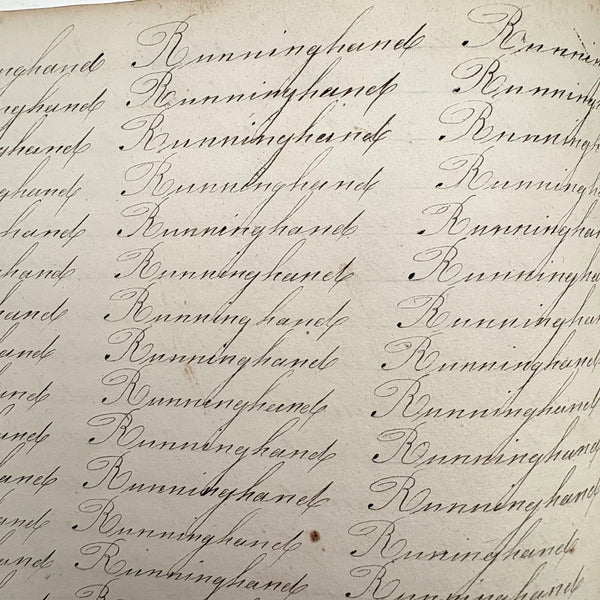 nninghand Runninghand Runnin
nninghand Runninghand Running
ghand Runninghand Runningh
ghand Runninghand Runningh
hand Runninghand Runningha
hand Runninghand Runningha
hand Runninghand Runninghan
and Runninghand Runninghand
and Runninghand Runninghand
and Runninghand Runninghand
and Runninghand Runninghand
and Runninghand Runninghand
and Runninghand Runninghand